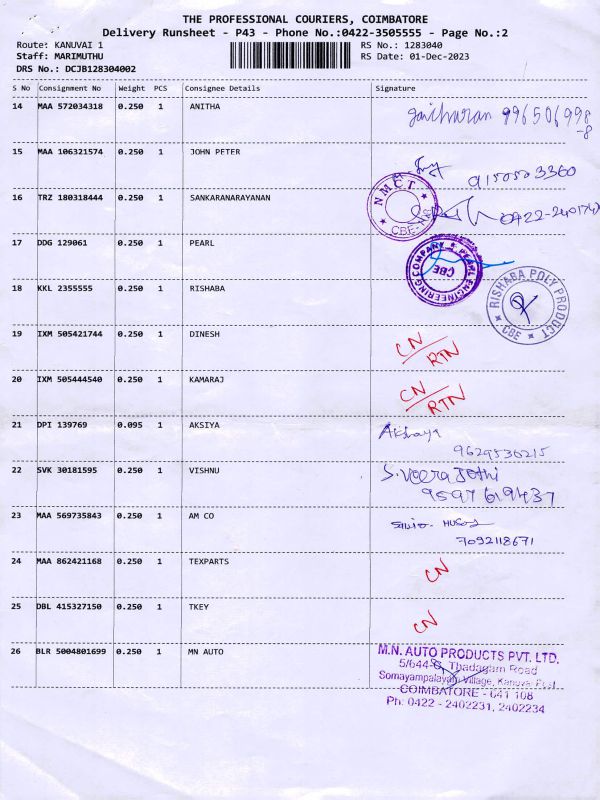 THE PROFESSIONAL COURIERS, COIMBATORE
Delivery Runsheet - P43 - Phone No.:0422-3505555 - Page No.:2
Route: KANUVAI 1 RS No.: 1283040
Staff: MARIMUTHU RS Date: 01-Dec-2023
DRS No.: DCJB128304002
S No Consignment No Weight PCS Consignee Details Signature
14 MAA 572034318 0.250 1 ANITHA
996506998
-8
15 MAA 106321574 0.250 1 JOHN PETER
9150503360
16 TRZ 180318444 0.250 1 SANKARANARAYANAN
NMCT
CBE
17 DDG 129061 0.250 1 PEARL
PEARL ENGINEERING COMPANY
CBE
18 KKL 2355555 0.250 1 RISHABA
RISHABA POLY PRODUCT
CBE
19 IXM 505421744 0.250 1 DINESH
CN/RTN
20 IXM 505444540 0.250 1 KAMARAJ
CN/RTN
21 DPI 139769 0.095 1 AKSIYA
Akshaya
9629536215
22 SVK 30181595 0.250 1 VISHNU
S.Veera Jothi
9597619437
23 MAA 569735843 0.250 1 AM CO
7092118671
24 MAA 862421168 0.250 1 TEXPARTS
CN
25 DBL 415327150 0.250 1 TKEY
CN
26 BLR 5004801699 0.250 1 MN AUTO
M.N. AUTO PRODUCTS PVT. LTD.
5/644-G, Thadagam Road
Somayampalayam Village, Kanuvai Post
COIMBATORE - 641 108
Ph: 0422 - 2402231, 2402234